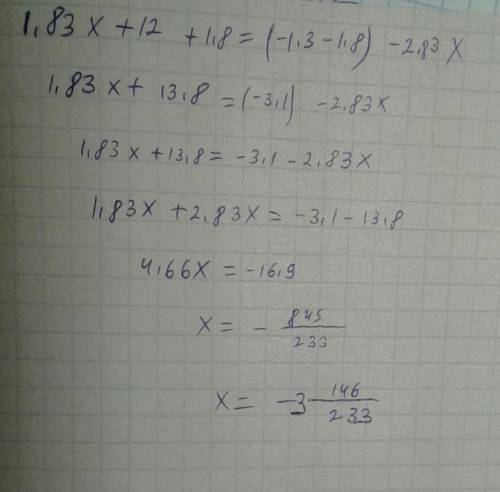 1,83x + 12 + 1,8 = (-1,3 - 1,8) - 2,83x
1,83x + 13,8 = (-3,1) - 2,83x
1,83x + 13,8 = -3,1 - 2,83x
1,83x + 2,83x = -3,1 - 13,8
4,66x = -16,9
x = - 845/233
x = -3 146/233